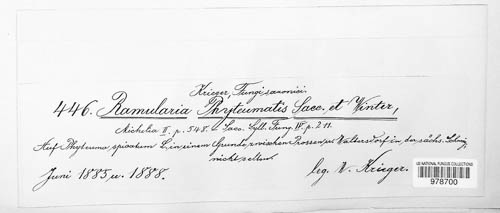 Krieger, Fungi saxonici.
446. Ramularia Phyteumatis Sacc. et Winter,
Michelia II. p. 548. Sacc. Syll. Fung. IV. p. 211.
Auf Phyteuma spicatum L. in einem Grunde zwischen Prossen und Waltersdorf in der sächs. Schweiz,
nicht selten.
Juni 1885 u. 1888.
leg. W. Krieger.
US NATIONAL FUNGUS COLLECTIONS
978700